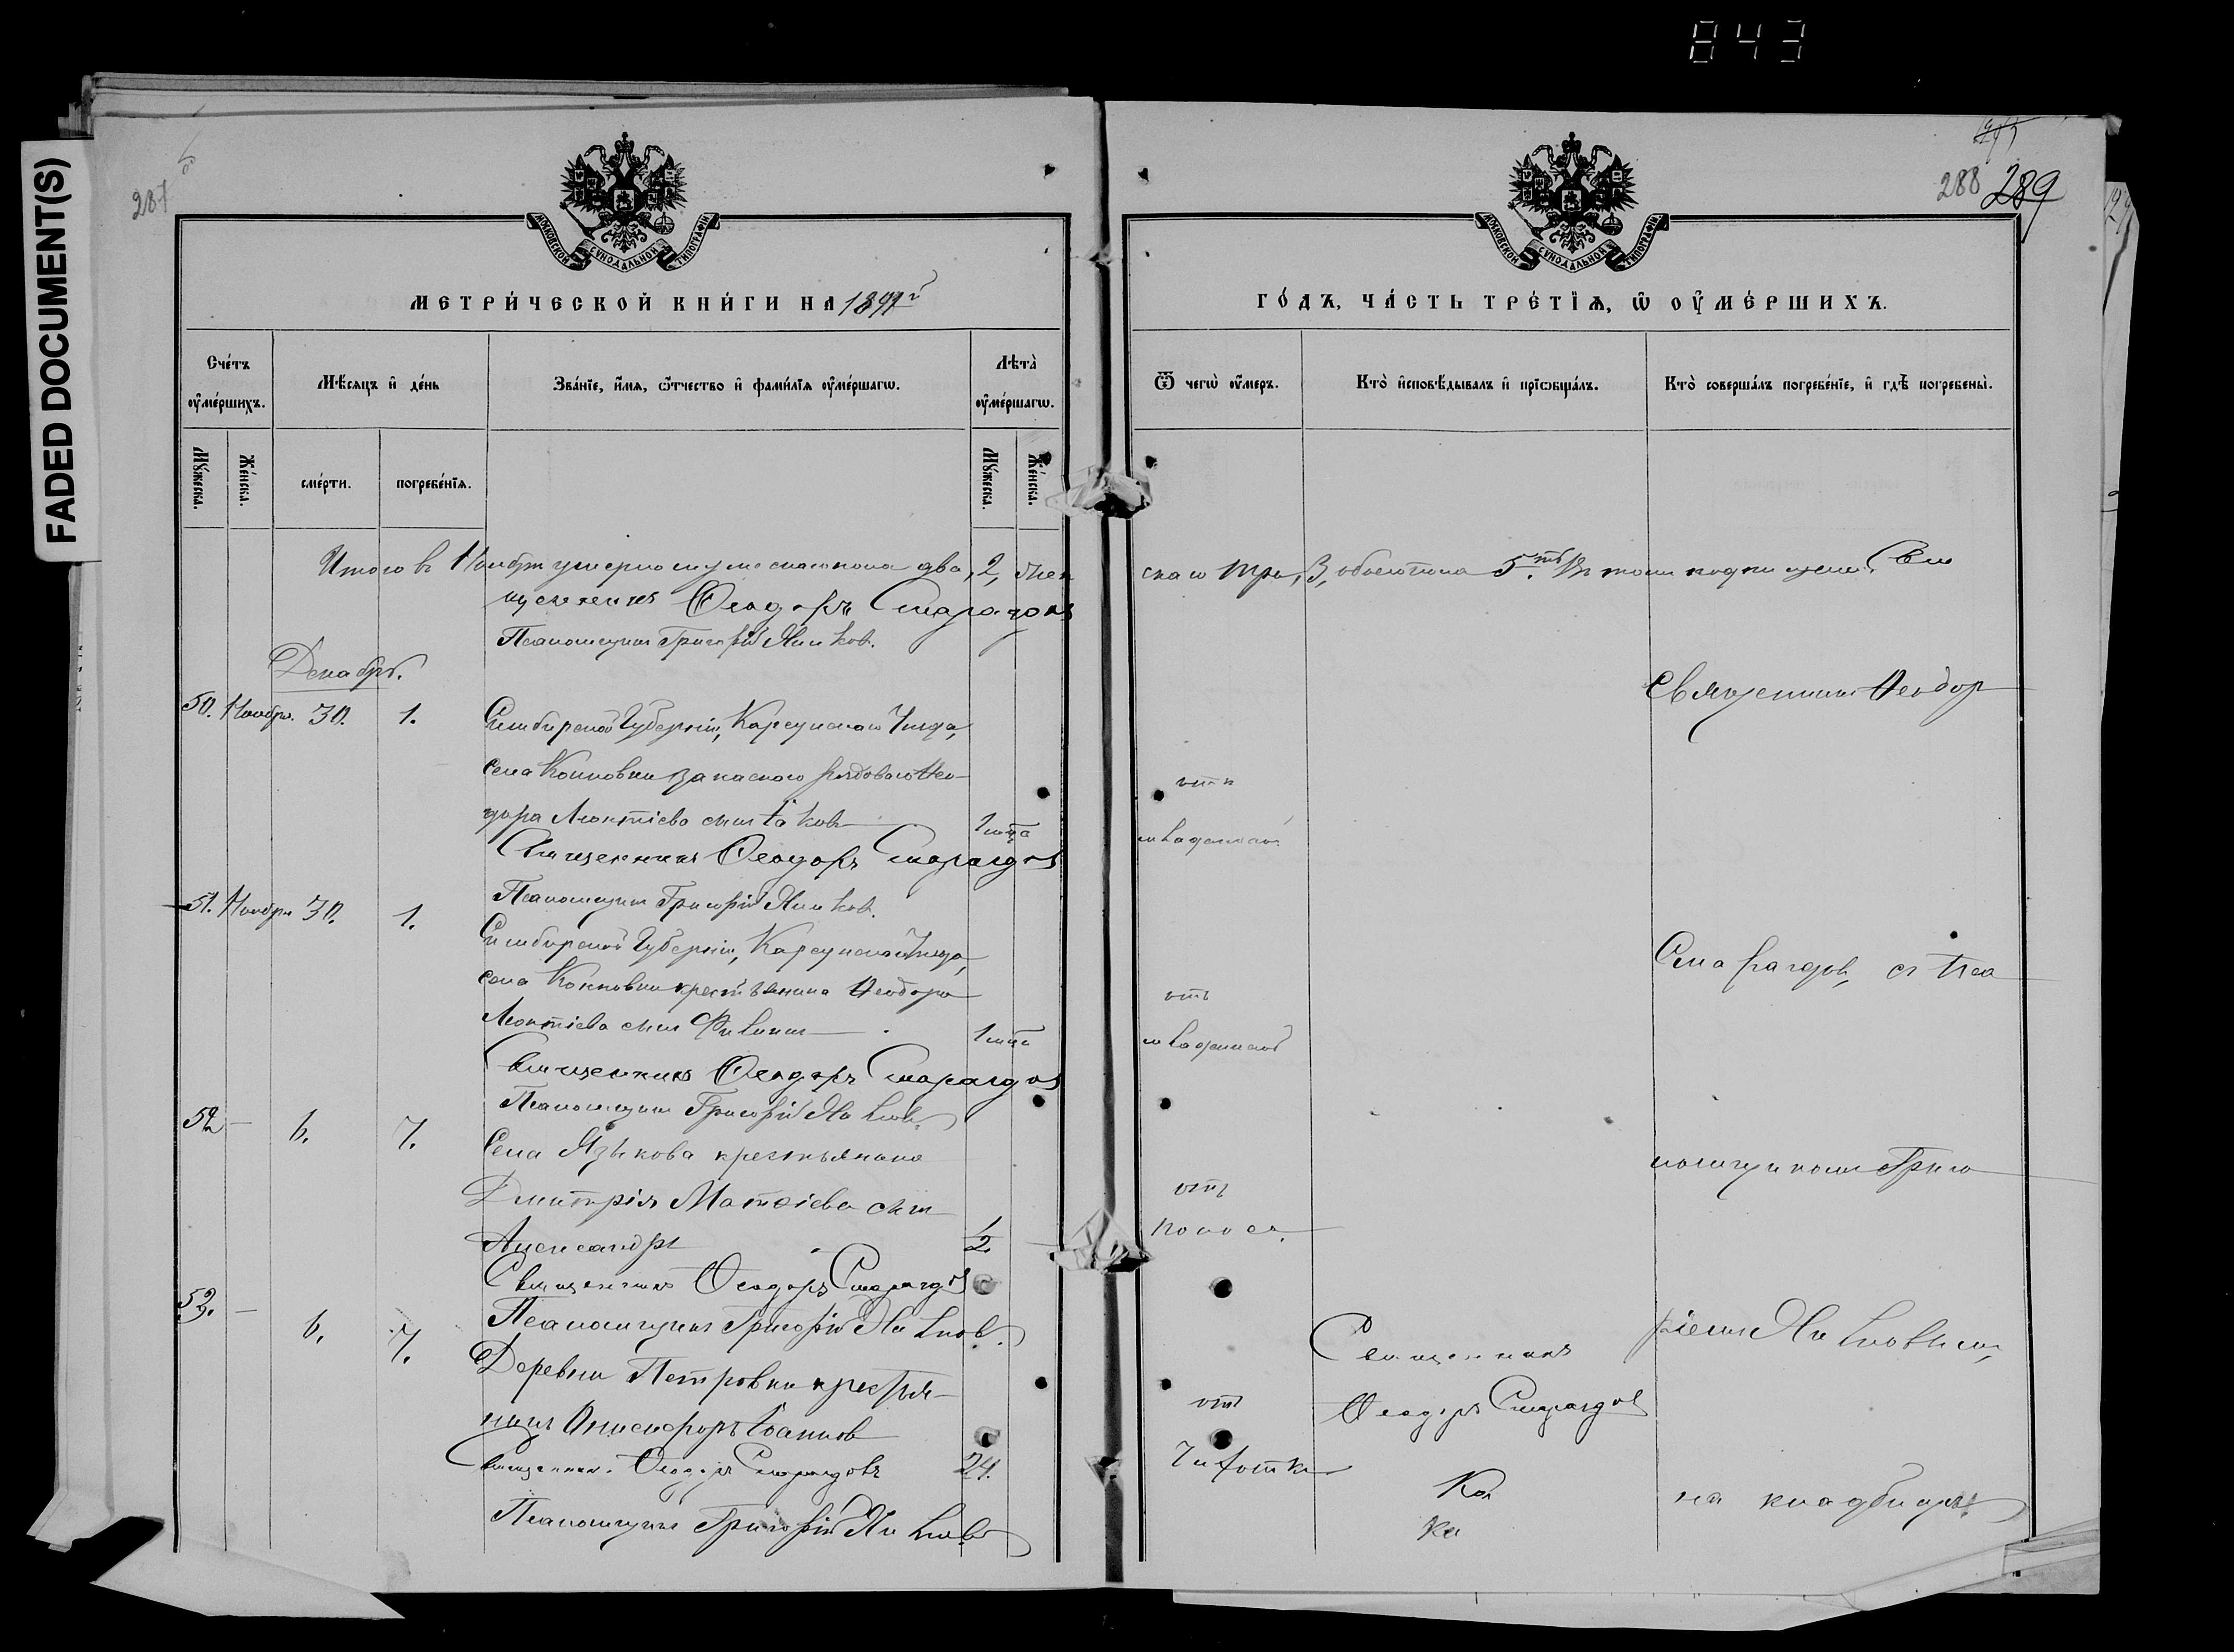 843
FADED DOCUMENT(S)
287
288 289
МОСКОВСКОЙ СѴНОДАЛЬНОЙ ТИПОГРАФІИ
МЕТРИ́ЧЕСКОЙ КНИ́ГИ НА 1891 г
Сче́тъ ᲂу҆ме́ршихъ.
Мѣ́сяцъ и҆ де́нь
Зва́нїе, и҆́мѧ, ѻ҆́тчество и҆ фами́лїѧ ᲂу҆ме́ршагѡ.
Лѣта̀ ᲂу҆ме́ршагѡ.
Мꙋ́жеска.
Же́нска.
сме́рти.
погребе́нїѧ.
Мꙋ́жеска.
Же́нска.
Итого въ Ноябрѣ умерло мужескаго пола два, 2, жен
щенникъ Ѳеодоръ Смарагдовъ
Псаломщикъ Григорій
Декабрь.
50. Ноябрь. 30. 1. Симбирской Губерніи, Карсунскаго Уѣзда,
села Коиновки запаснаго рядоваго Ѳео-
дора Леонтіева сынъ Іаковъ 1 мѣс
Священникъ Ѳеодоръ Смарагдовъ
Псаломщикъ Григорій
51. Ноябрь 30. 1. Симбирской Губерніи, Карсунскаго Уѣзда,
села крестьянина Ѳеодора
Леонтіева сынъ Филиппъ 1 мѣс
Священникъ Ѳеодоръ Смарагдовъ
Псаломщикъ Григорій
52 — 6. 7. Села Языкова крестьянина
Димитрія Матѳіева сынъ
Александръ 1/2
Священникъ Ѳеодоръ Смарагдовъ
Псаломщикъ Григорій
53. — 6. 7. Деревни Петровки крестья-
нинъ Онисифоръ Іоанновъ
Священник. Ѳеодоръ Смарагдовъ 24.
Псаломщикъ Григорій
МОСКОВСКОЙ СѴНОДАЛЬНОЙ ТИПОГРАФІИ
ГО́ДЪ, ЧА́СТЬ ТРЕ́ТЇѦ, Ѡ҆ ОУ҆МЕ́РШИХЪ.
Ѿ чегѡ̀ ᲂу҆́меръ.
Кто̀ и҆сповѣ́дывалъ и҆ прїѡбща́лъ.
Кто̀ соверша́лъ погребе́нїе, и҆ гдѣ̀ погребены̀.
скаго три, 3, обоего пола 5.ть Въ томъ подписуемъ. Свя
Священникъ Ѳеодор
отъ
младенской
Смарагдовъ, съ Пса
отъ
младенской
ломщикомъ Григо
отъ
поноса.
Священникъ
Ѳеодоръ Смарагдовъ
отъ
Чахотки
на кладбищѣ